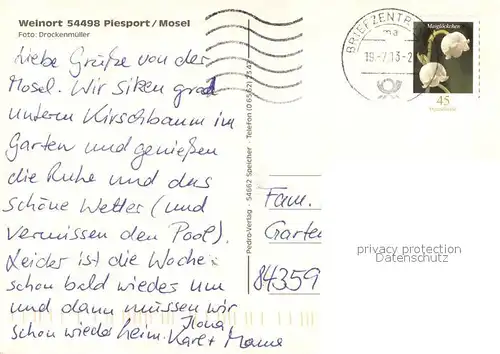 Weinort 54498 Piesport/Mosel
Foto: Drockenmüller
Liebe Grüße von der
Mosel. Wir sitzen grad
unterm Kirschbaum im
Garten und genießen
die Ruhe und das
schöne Wetter (und
vermissen den Pool).
Leider ist die Woche
schon bald wieder um
und dann müssen wir
schon wieder heim. Ilona
Karl + Mama
Pedro-Verlag - 54662 Speicher - Telefon (0 65 62)
BRIEFZENTR
ma
19.-7.13-2
Maiglöckchen
45
Fam.
Garten
84359
privacy protection
Datenschutz